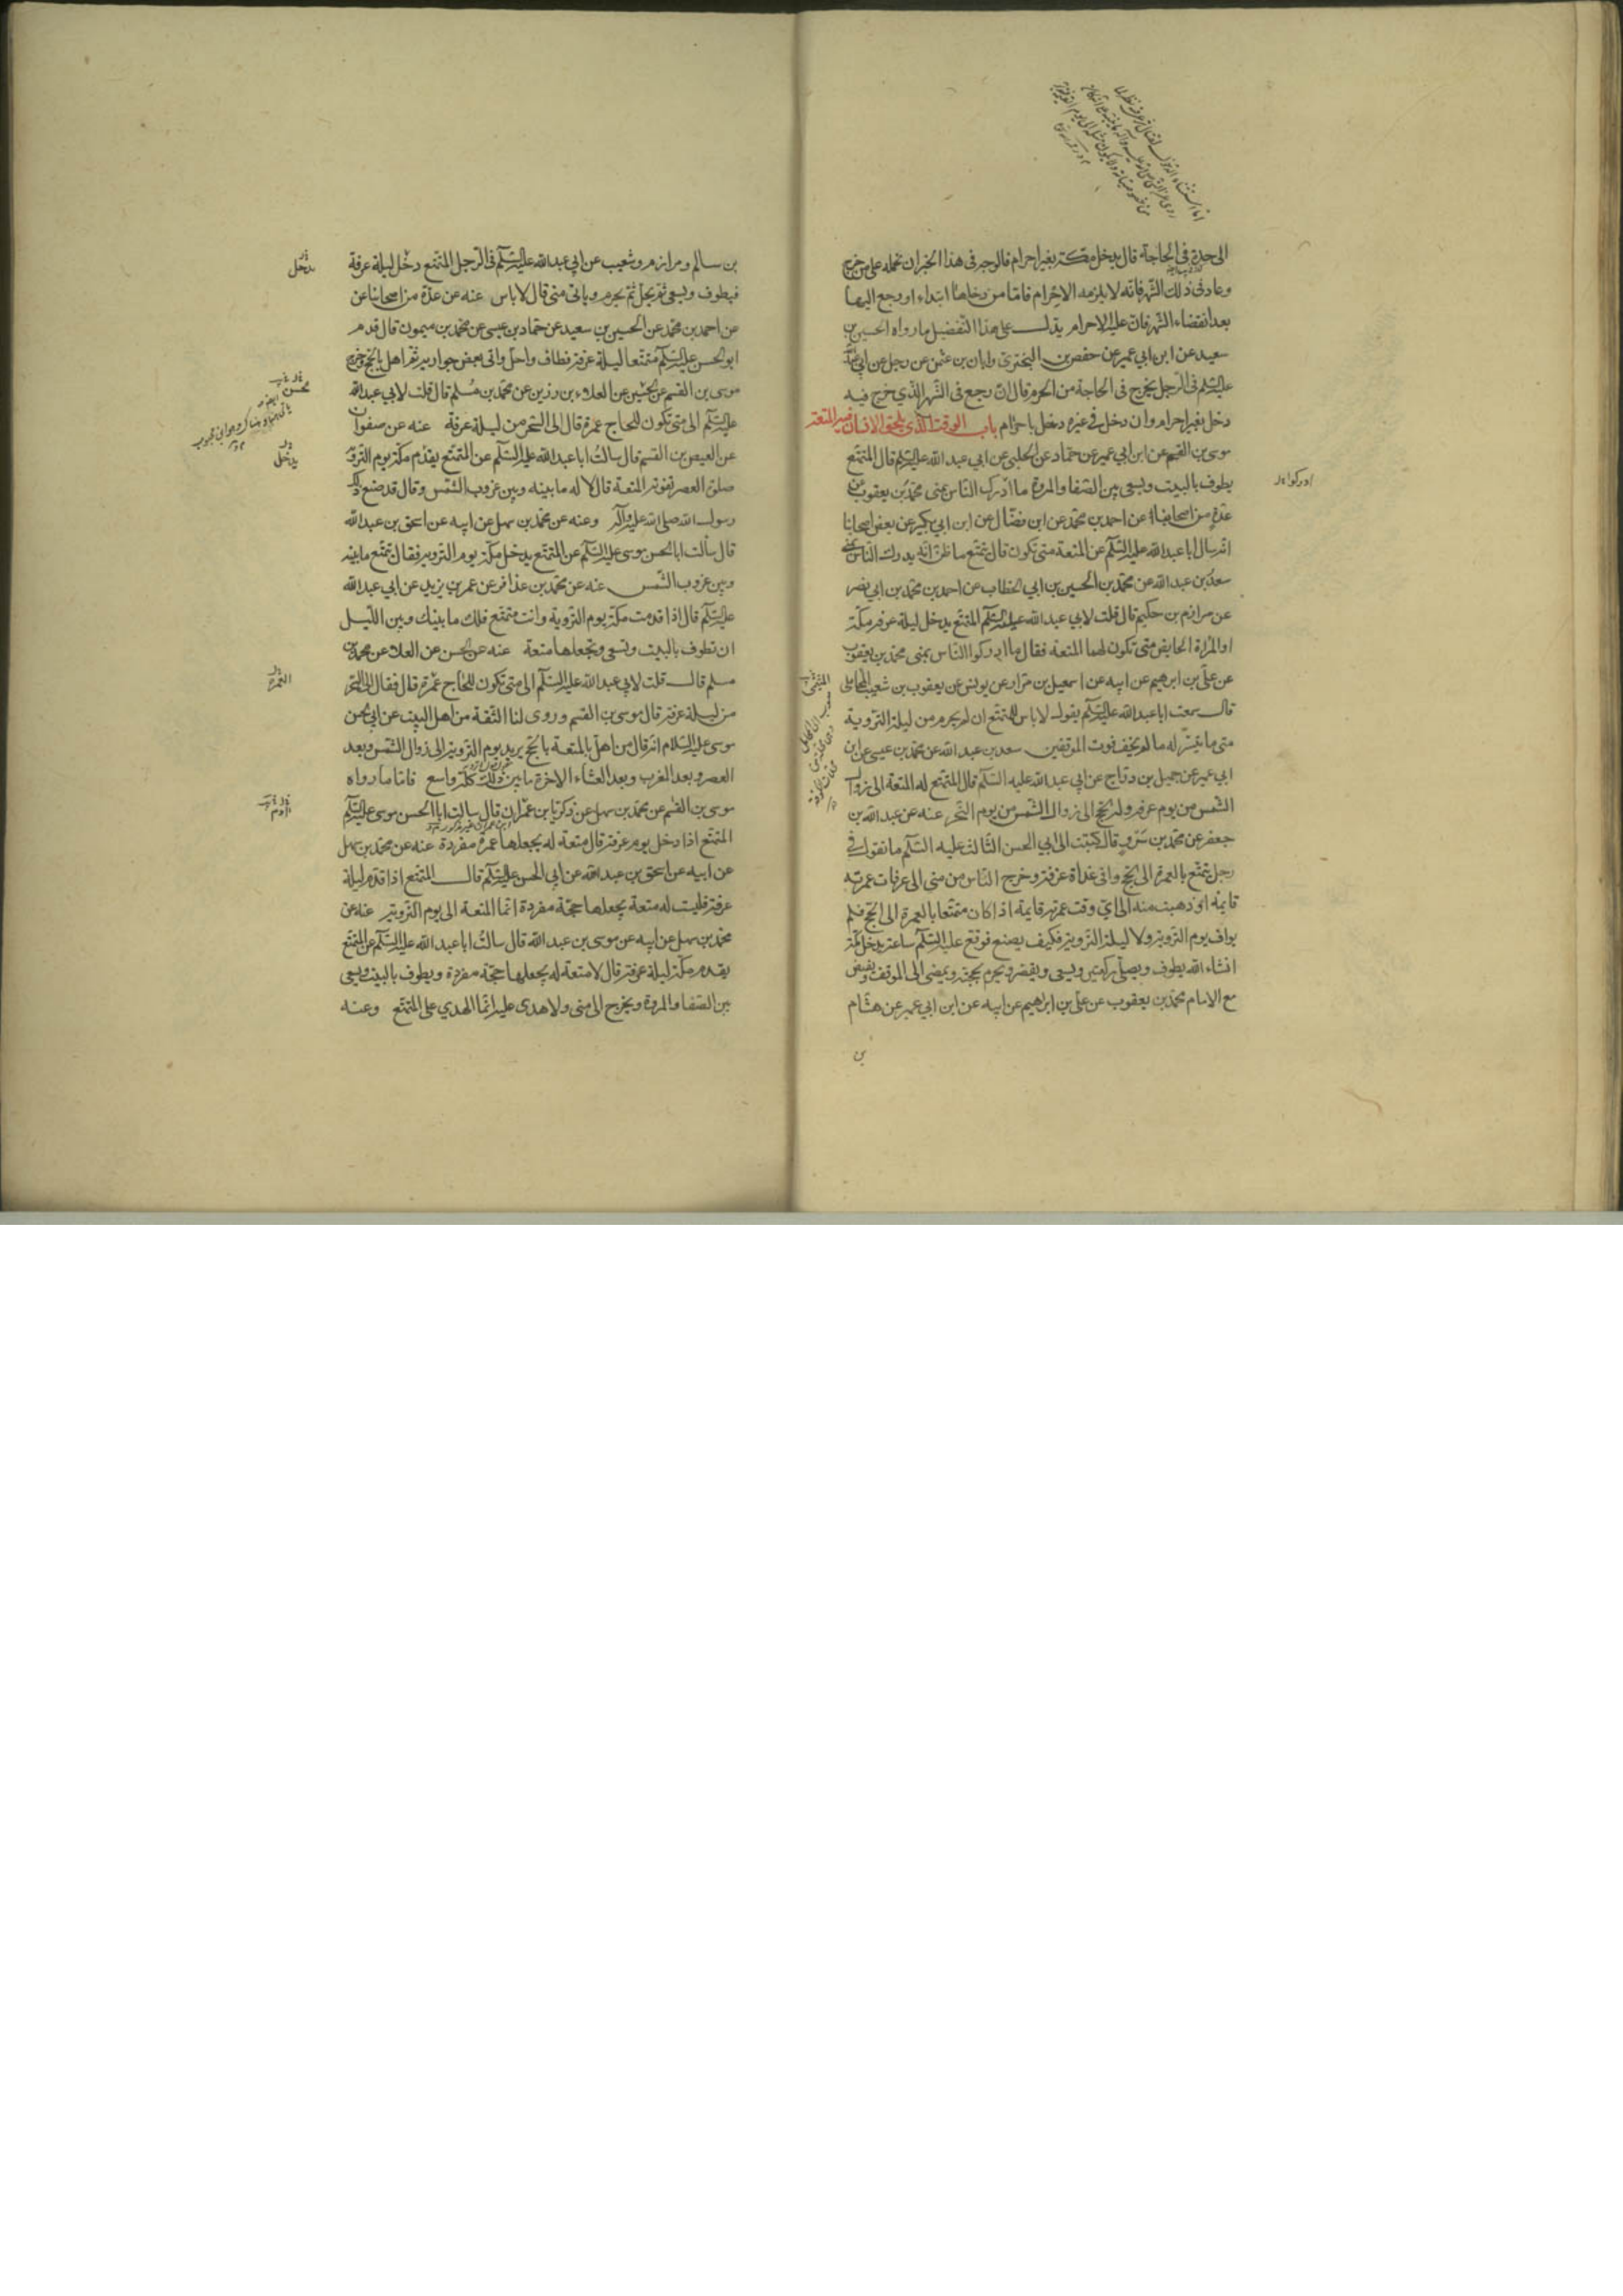 الى جدة فى الحاجة قال يدخل مكة بغير احرام فالوجه فى هذا الخبر ان نحمله على من خرج
وعاد فى ذلك الشهر فانه لا يلزمه الاحرام فاما من دخلها ابتداء او رجع اليها
بعد انقضاء الشهر فان عليه الاحرام يدل على هذا التفصيل ما رواه الحسين بن
سعيد عن ابن ابي عمير عن حفص بن البخترى وابان بن عثمن عن رجل عن ابي عبدالله
عليه السلم فى الرجل يخرج فى الحاجة من الحرم قال ان رجع فى الشهر الذي خرج فيه
دخل بغير احرام وان دخل فى غيره دخل باحرام باب الوقت الذي يلحق الانسان فيه المتعة
موسى بن القسم عن ابن ابي عمير عن حماد عن الحلبى عن ابي عبد الله عليه السلم قال المتمتع
يطوف بالبيت ويسعى بين الصفا والمروة ما ادرك الناس بمنى محمد بن يعقوب عن
ادركوا
عدة من اصحابنا عن احمد بن محمد عن ابن فضال عن ابن ابي بكير عن بعض اصحابنا
انه سال ابا عبد الله عليه السلم عن المتعة متى تكون قال يتمتع ما ظن انه يدرك الناس بمنى
سعد بن عبد الله عن محمد بن الحسين بن ابي الخطاب عن احمد بن محمد بن ابي نصر
عن مرازم بن حكيم قال قلت لابي عبد الله عليه السلم المتمتع يدخل ليلة عرفه مكة
او المراة الحايض متى تكون لهما المتعة فقال ما ادركوا الناس بمنى محمد بن يعقوب
عن على بن ابرهيم عن ابيه عن اسمعيل بن مرار عن يونس عن يعقوب بن شعيب المحاملى
قال سمعت ابا عبد الله عليه السلم يقول لا باس للمتمتع ان لم يحرم من ليلة التروية
متى ما تيسر له ما لم يخف فوت الموقفين سعد بن عبد الله عن محمد بن عيسى عن ابن
ابي عمير عن جميل بن دراج عن ابي عبد الله عليه السلم قال المتمتع له المتعة الى زوال
الشمس من يوم عرفه وله الحج الى زوال الشمس من يوم النحر عنه عن عبد الله بن
جعفر عن محمد بن سرو قال كتبت الى ابي الحسن الثالث عليه السلم ما تقول فى
رجل يتمتع بالعمرة الى الحج وافى غداة عرفة وخرج الناس من منى الى عرفات عمرته
قايمة او ذهبت منه الى اي وقت عمرته قايمة اذا كان متمتعا بالعمرة الى الحج فلم
يواف يوم التروية ولا ليلة التروية فكيف يصنع فوقع عليه السلم ساعة يدخل مكة
انشاء الله يطوف ويصلى ركعتين ويسعى ويقصر ويحرم بحجته ويمضى الى الموقف ويفيض
مع الامام محمد بن يعقوب عن على بن ابراهيم عن ابيه عن ابن ابي عمير عن هشام
بن
بن سالم ومرازم وشعيب عن ابي عبد الله عليه السلم فى الرجل المتمتع دخل ليلة عرفة
يدخل
فيطوف ويسعى ثم يحل ثم يحرم وياتى منى قال لا باس عنه عن عدة من اصحابنا عن
عن احمد بن محمد عن الحسين بن سعيد عن حماد بن عيسى عن محمد بن ميمون قال قدم
ابو الحسن عليه السلم متمتعا ليلة عرفة فطاف واحل واتى بعض جواريه ثم اهل بالحج وخرج
موسى بن القسم عن الحسن عن العلاء بن رزين عن محمد بن مسلم قال قلت لابي عبد الله
محسن
عليه السلم الى متى تكون للحاج عمرة قال الى السحر من ليلة عرفة عنه عن صفوان
عن العيص بن القسم قال سالت ابا عبد الله عليه السلم عن المتمتع يقدم مكة يوم التروية
يدخل
صلوة العصر تفوته المتعة قال لا له ما بينه وبين غروب الشمس وقال قد صنع ذلك
رسول الله صلى الله عليه وآله وعنه عن محمد بن سهل عن ابيه عن اسحق بن عبد الله
قال سالت ابا الحسن موسى عليه السلم عن المتمتع يدخل مكة يوم التروية فقال يتمتع ما بينه
وبين غروب الشمس عنه عن محمد بن عذافر عن عمر بن يزيد عن ابي عبد الله
عليه السلم قال اذا قدمت مكة يوم التروية وانت متمتع فلك ما بينك وبين الليل
ان تطوف بالبيت وتسعى وتجعلها متعة عنه عن الحسن عن العلا عن محمد بن
مسلم قال قلت لابي عبد الله عليه السلم الى متى تكون للحاج عمرة قال فقال الى السحر
العمرة
من ليلة عرفة قال موسى بن القسم وروى لنا الثقة من اهل البيت عن ابي الحسن
موسى عليه السلام انه قال من اهل بالمتعة بالحج يريد يوم التروية الى زوال الشمس وبعد
العصر وبعد المغرب وبعد العشاء الاخرة ما بين ذلك كله واسع فاما ما رواه
موسى بن القسم عن محمد بن سهل عن زكريا بن عمران قال سالت ابا الحسن موسى عليه السلم
المتمتع اذا دخل يوم عرفة قال لا متعة له يجعلها عمرة مفردة عنه عن محمد بن سهل
عن ابيه عن اسحق بن عبد الله عن ابي الحسن عليه السلم قال المتمتع اذا قدم ليلة
عرفة فليست له متعة يجعلها حجة مفردة انما المتعة الى يوم التروية عنه عن
محمد بن سهل عن ابيه عن موسى بن عبد الله قال سالت ابا عبد الله عليه السلم عن المتمتع
يقدم مكة ليلة عرفة قال لا متعة له يجعلها حجة مفردة ويطوف بالبيت ويسعى
بين الصفا والمروة ويخرج الى منى ولا هدى عليه انما الهدي على المتمتع وعنه